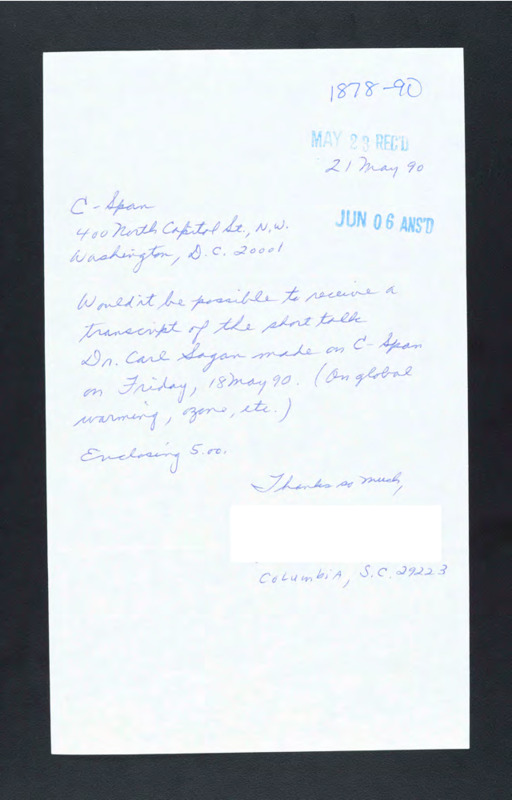 1878-90
MAY 23 REC'D
21 May 90
C-Span
400 North Capitol St., N.W.
Washington, D.C. 20001
JUN 06 ANS'D
Would it be possible to receive a
transcript of the short talk
Dr. Carl Sagan made on C-Span
on Friday, 18 May 90. (On global
warming, ozone, etc.)
Enclosing 5.00.
Thanks so much,
Columbia, S.C. 29223